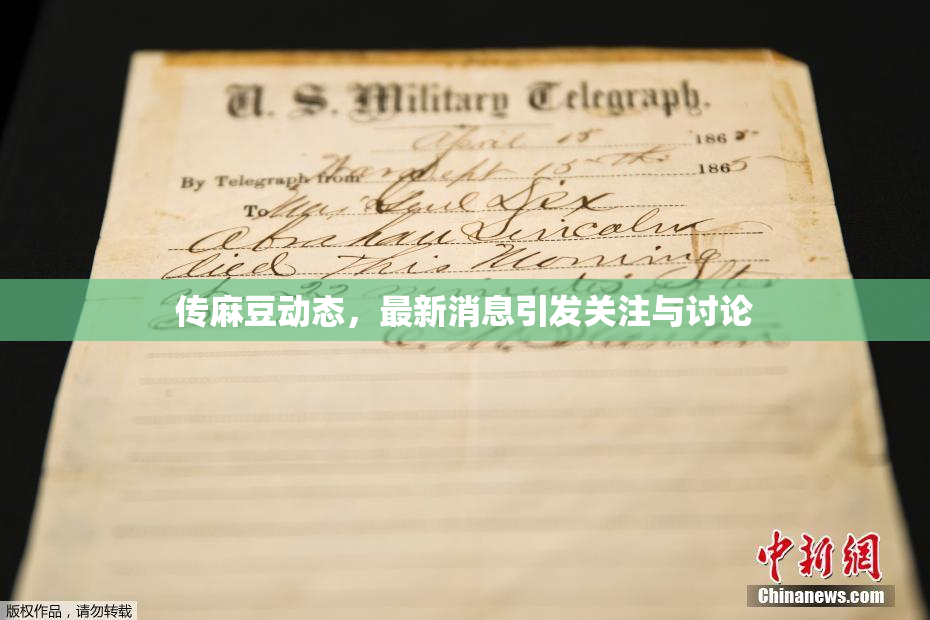 U. S. Military Telegraph.
April 15 1865
By Telegraph from War Dept 15th 1865
To Maj Genl Dix
Abraham Lincoln
died this Morning
at 22 minutes after
传麻豆动态，最新消息引发关注与讨论
E. M. Stanton
中新网
Chinanews.com
版权作品，请勿转载